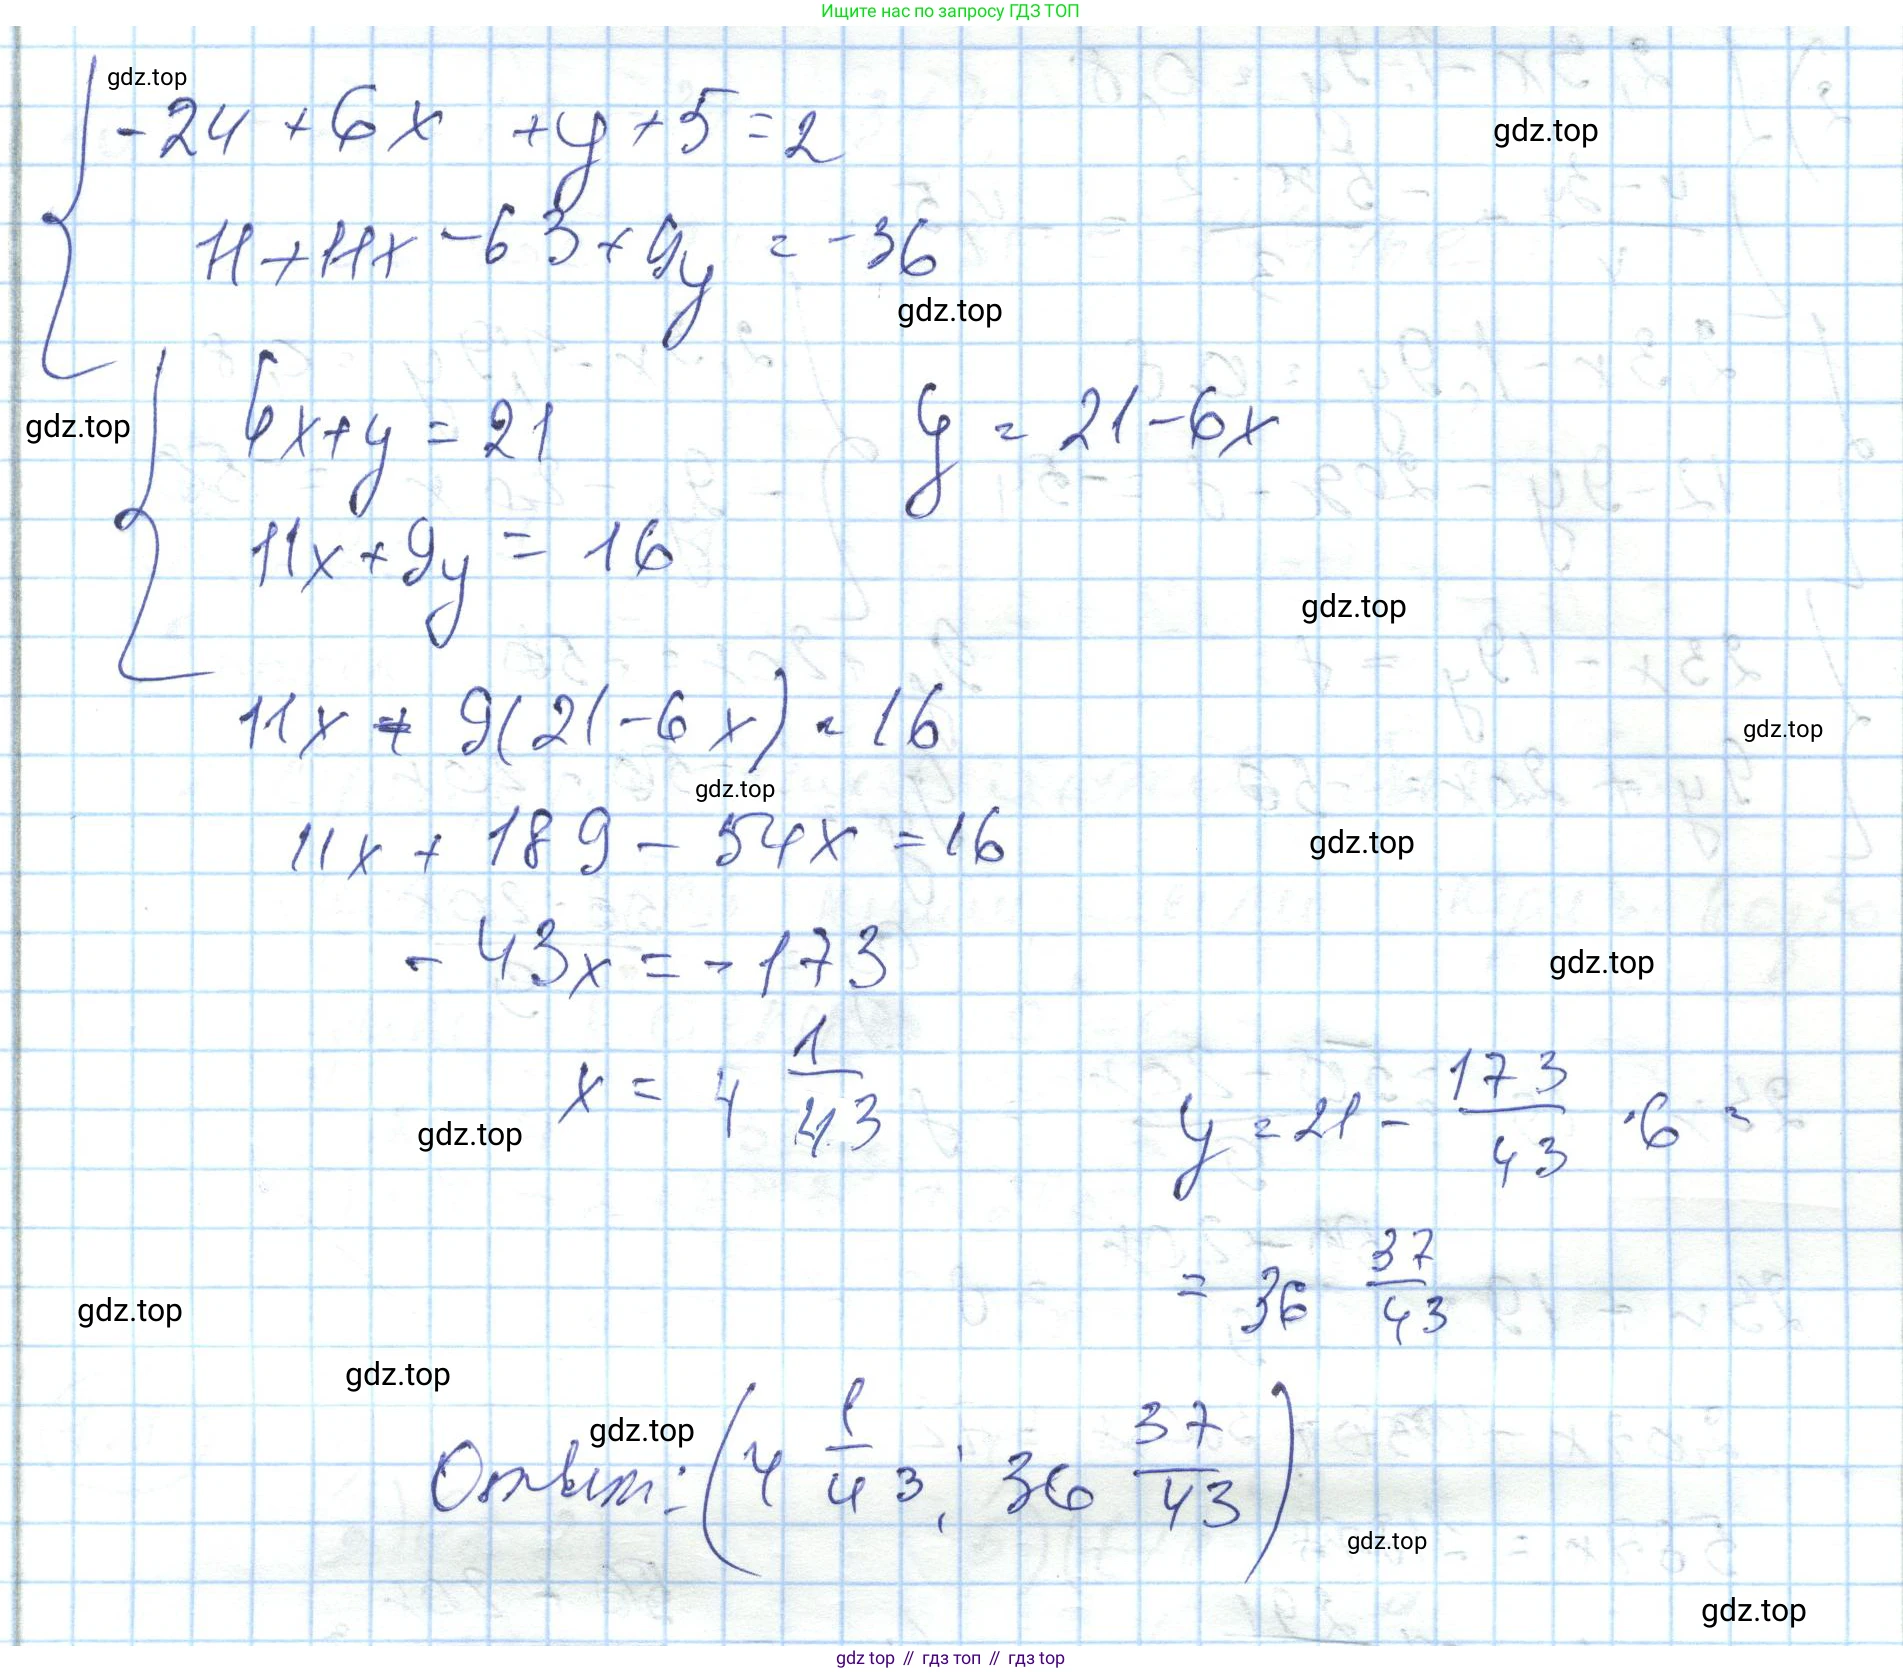 Ищите нас по запросу ГДЗ ТОП
gdz.top
-24 + 6x + y + 5 = 2
gdz.top
11 + 11x - 63 + 9y = -36
gdz.top
6x + y = 21 y = 21 - 6x
gdz.top
11x + 9y = 16
gdz.top
11x + 9(21 - 6x) = 16
gdz.top
gdz.top
11x + 189 - 54x = 16
gdz.top
-43x = -173
gdz.top
x = 4 1/43 y = 21 - 173/43 · 6 =
gdz.top
= 36 37/43
gdz.top
gdz.top
gdz.top
Ответ: (4 1/43; 36 37/43)
gdz.top
gdz.top
gdz top // гдз топ // гдз top